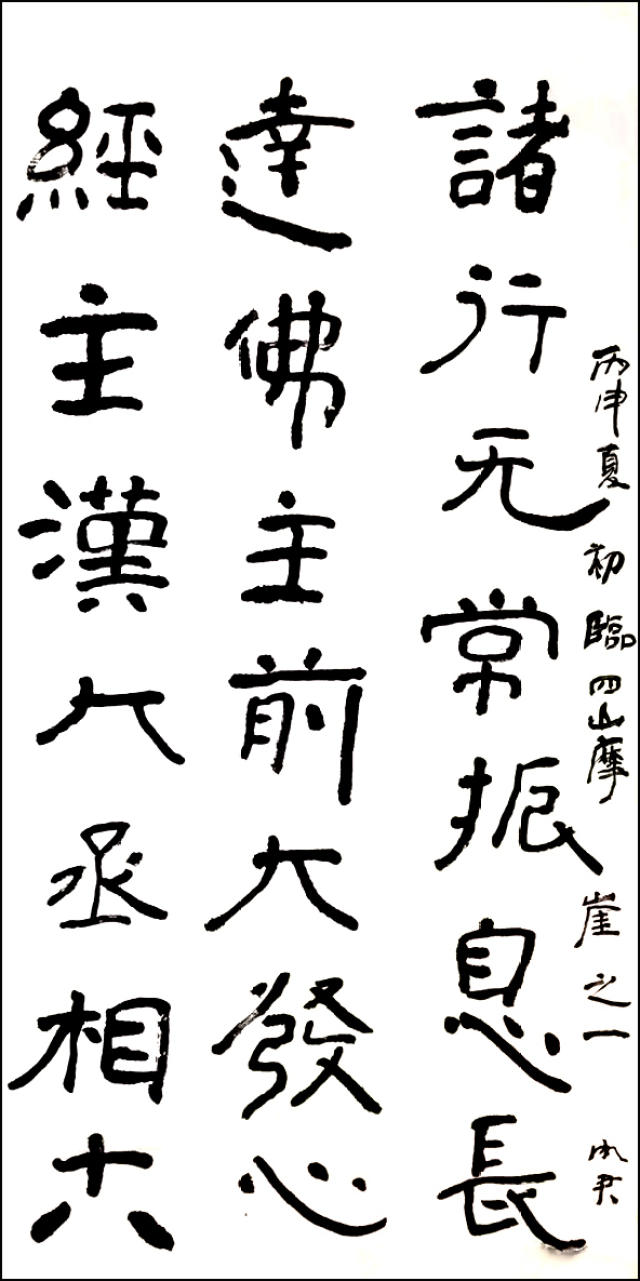 諸行无常振息長
達佛主前大發心
經主漢大丞相六
丙申夏初臨四山摩崖之一